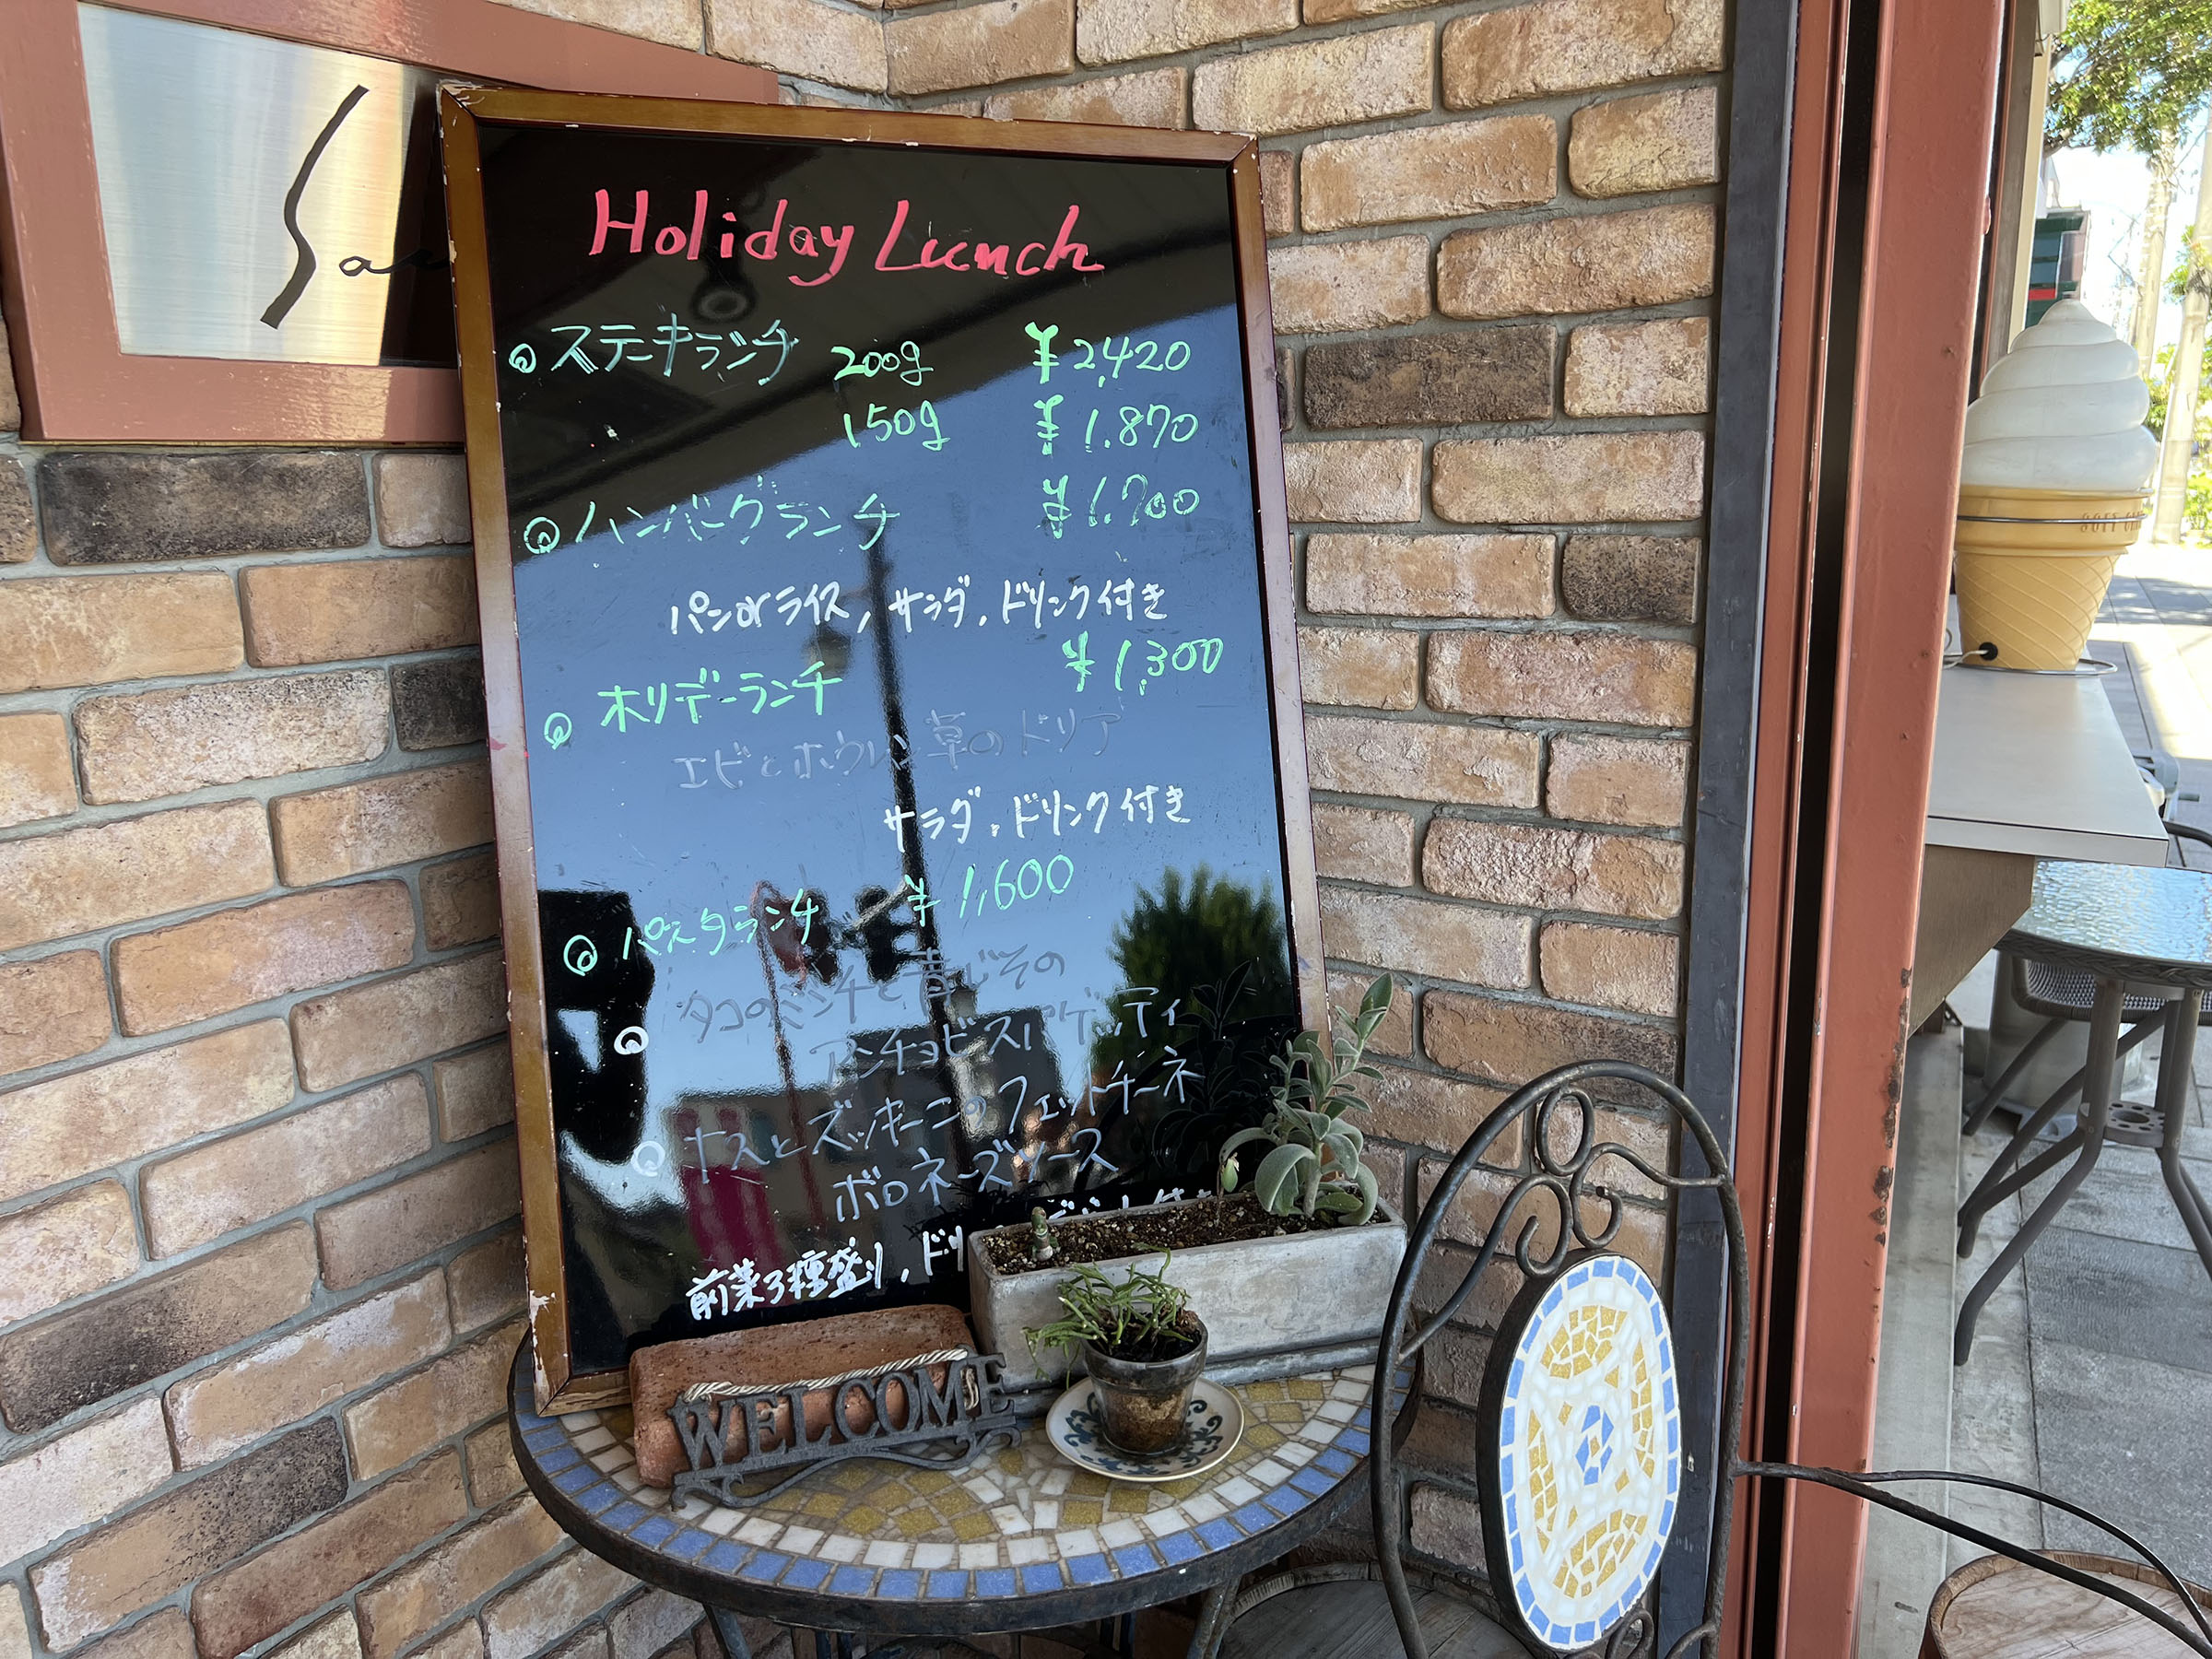 Holiday Lunch
ステーキランチ 200g ¥2,420
150g ¥1.870
ハンバーグランチ ¥1.700
パンorライス, サラダ, ドリンク付き
ホリデーランチ ¥1,300
エビとホウレン草のドリア
サラダ, ドリンク付き
パスタランチ ¥1,600
タコのミンチと青じその
アンチョビスパゲッティ
ナスとズッキーニのフェットチーネ
ボロネーズソース
前菜3種盛り, ドリ
WELCOME
SOFT